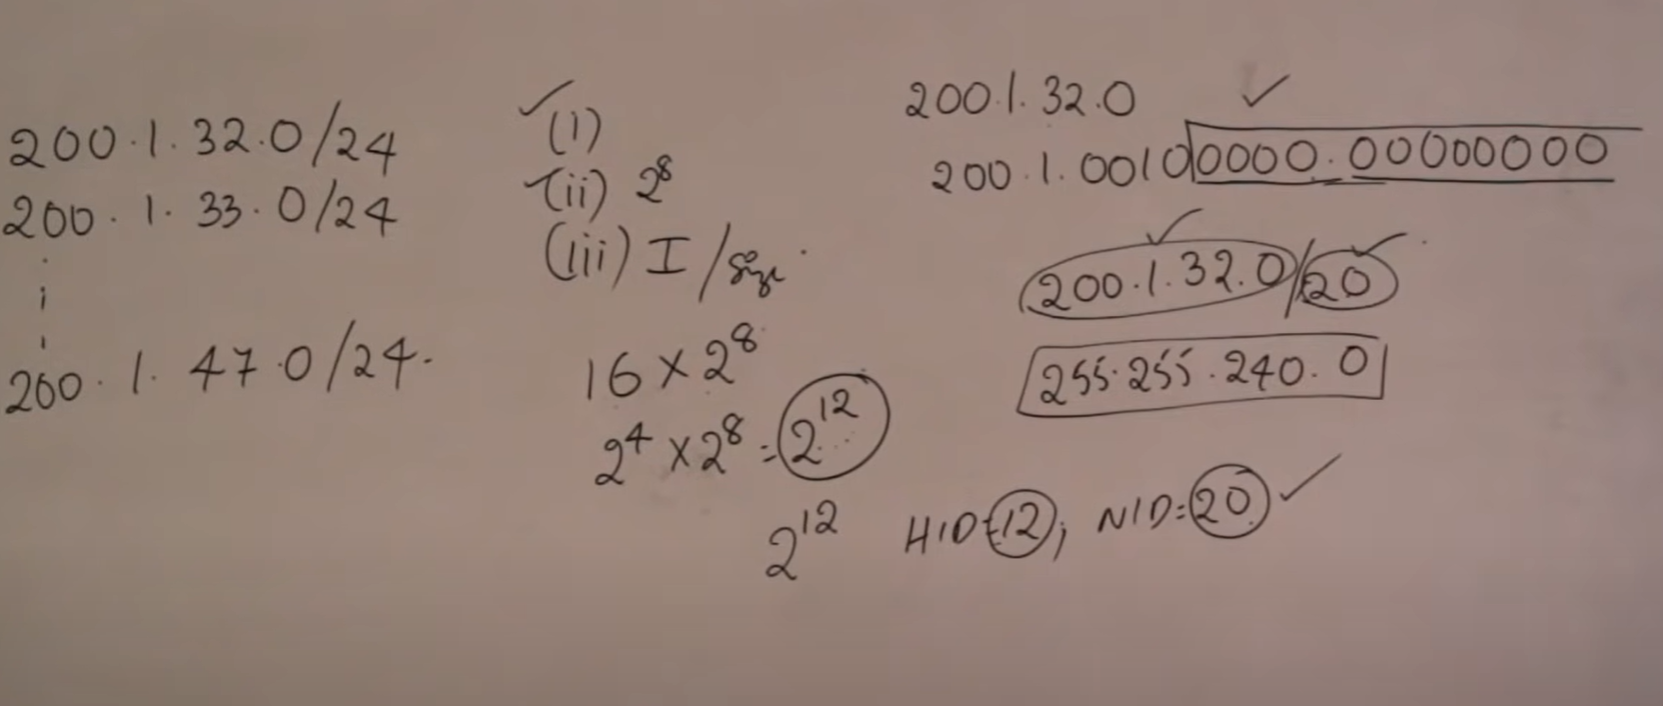 200.1.32.0/24
200.1.33.0/24
200.1.47.0/24.
✓(i)
✓(ii) 2⁸
(iii) I/size.
16 × 2⁸
2⁴ × 2⁸ = 2¹²
2¹² HID=12; NID=20 ✓
200.1.32.0 ✓
200.1.00100000.00000000
200.1.32.0/20
255.255.240.0